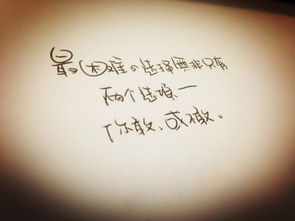 最困难的选择無非只有
两个选项—
你敢、或不敢。